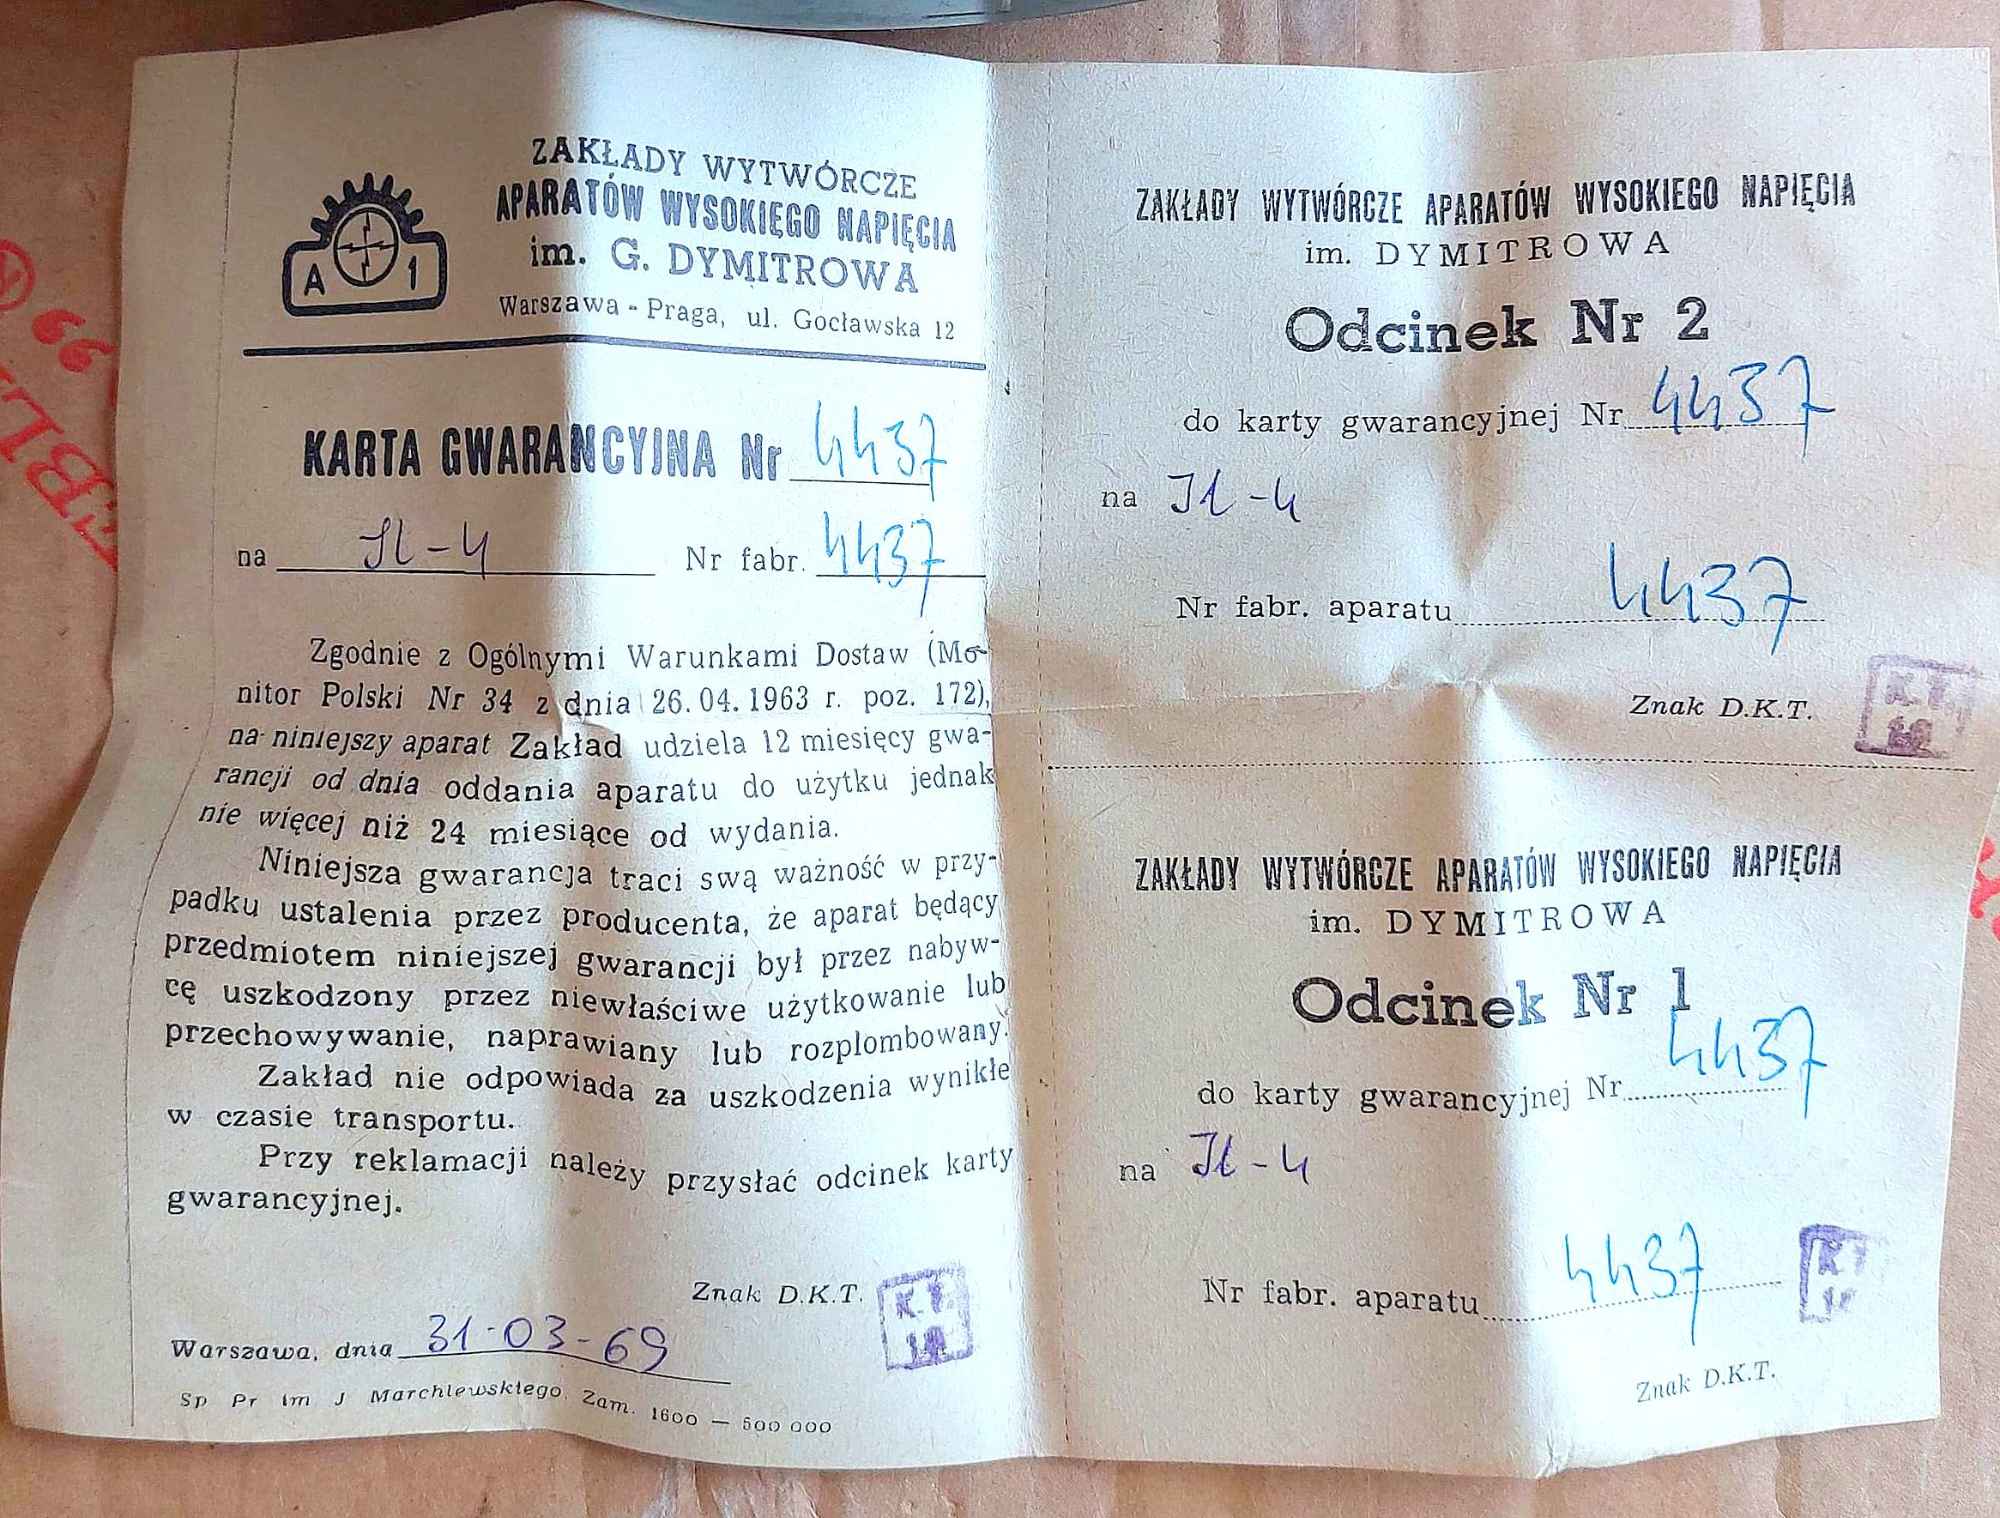 A 1
ZAKŁADY WYTWÓRCZE
APARATÓW WYSOKIEGO NAPIĘCIA
im. G. DYMITROWA
Warszawa - Praga, ul. Gocławska 12
KARTA GWARANCYJNA Nr 4437
na JL-4 Nr fabr. 4437
Zgodnie z Ogólnymi Warunkami Dostaw (Mo-
nitor Polski Nr 34 z dnia 26.04.1963 r. poz. 172),
na niniejszy aparat Zakład udziela 12 miesięcy gwa-
rancji od dnia oddania aparatu do użytku jednak
nie więcej niż 24 miesiące od wydania.
Niniejsza gwarancja traci swą ważność w przy-
padku ustalenia przez producenta, że aparat będący
przedmiotem niniejszej gwarancji był przez nabyw-
cę uszkodzony przez niewłaściwe użytkowanie lub
przechowywanie, naprawiany lub rozplombowany.
Zakład nie odpowiada za uszkodzenia wynikłe
w czasie transportu.
Przy reklamacji należy przysłać odcinek karty
gwarancyjnej.
Znak D.K.T.
K.T.
Warszawa, dnia 31-03-69
Sp Pr im J Marchlewskiego. Zam. 1600 — 500 000
ZAKŁADY WYTWÓRCZE APARATÓW WYSOKIEGO NAPIĘCIA
im. DYMITROWA
Odcinek Nr 2
do karty gwarancyjnej Nr 4437
na JL-4
Nr fabr. aparatu 4437
Znak D.K.T.
K.T.
ZAKŁADY WYTWÓRCZE APARATÓW WYSOKIEGO NAPIĘCIA
im. DYMITROWA
Odcinek Nr 1
do karty gwarancyjnej Nr 4437
na JL-4
Nr fabr. aparatu 4437
Znak D.K.T.